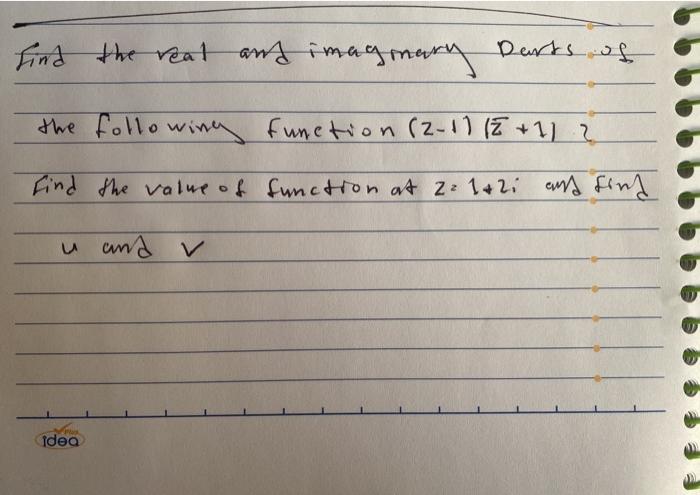 Find the real and imaginary Parts of
the following function (z-1) (z̅ +1) ?
Find the value of function at z = 1+2i and find
u and v
Plus
idea